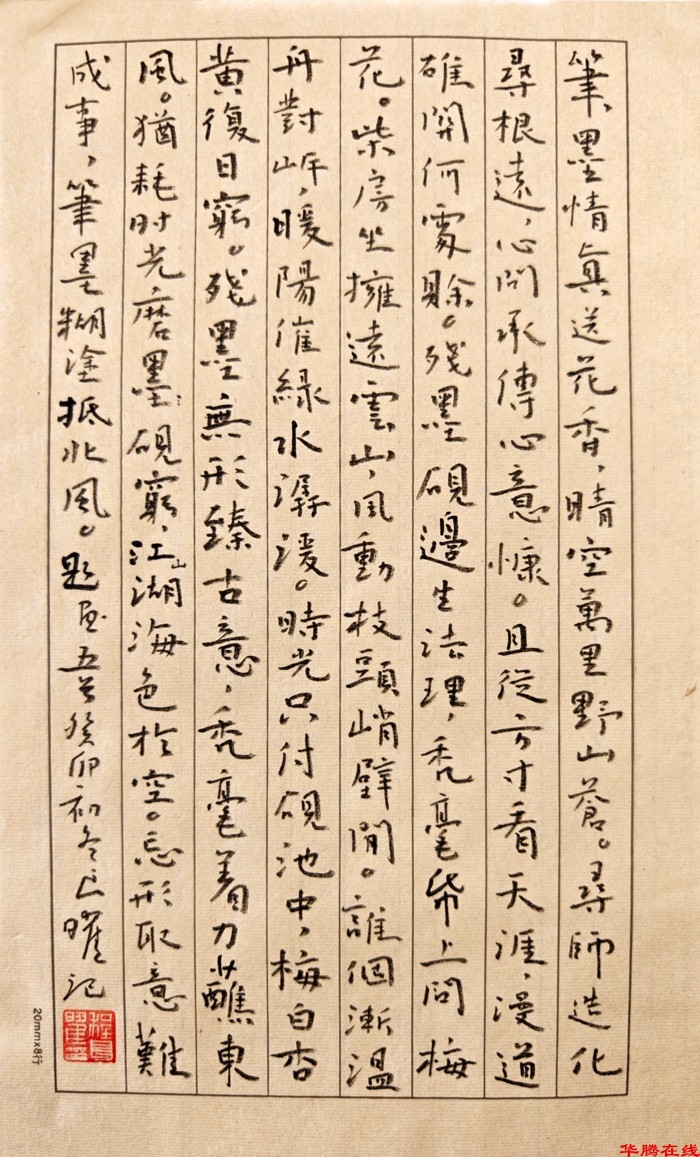 筆墨情真送花香，晴空萬里野山蒼。尋師造化
尋根遠，心問承傳心意慷。且從方寸看天涯，漫道
雄關何處賒。殘墨硯邊生法理，禿毫帋上問梅
花。柴房坐擁遠雲山，風動枝頭峭壁閒。誰個漸溫
舟對岸，暖陽催綠水潺湲。時光只付硯池中，梅白杏
黃復日窮。殘墨無形臻古意，禿毫着力蘸東
風。猶耗时光磨墨硯窮，江山湖海色於空。忘形取意難
成事，筆墨糊塗抵北風。題画五首癸卯初冬曜记
20mmx8行
华腾在线